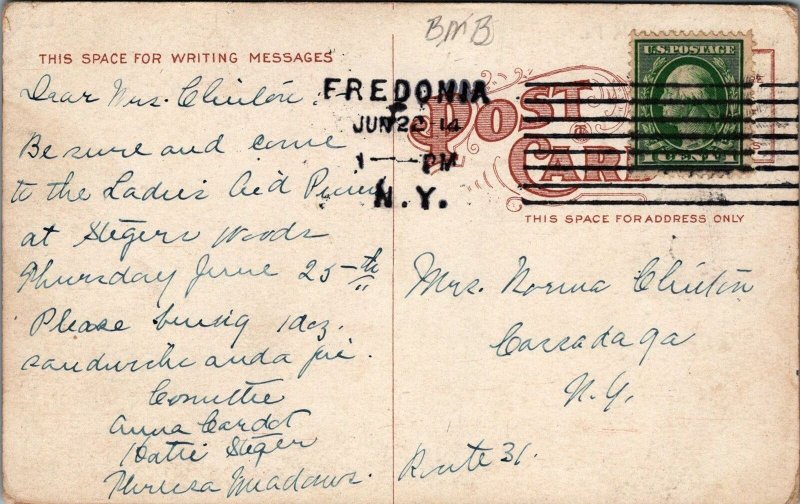 BMB
THIS SPACE FOR WRITING MESSAGES
Dear Mrs. Clinton:
Be sure and come
to the Ladies Aid Picnic
at Stegers Woods
Thursday June 25th
Please bring 1 doz.
sandwiche and a pie.
Comittie
Anna Cardot
Katie Steger
Theresa Meadows.
FREDONIA
JUN 22 14
1 PM
N.Y.
POST
CARD
U.S. POSTAGE
1 CENT 1
THIS SPACE FOR ADDRESS ONLY
Mrs. Norma Clinton
Cassadaga
N.Y.
Route 31.